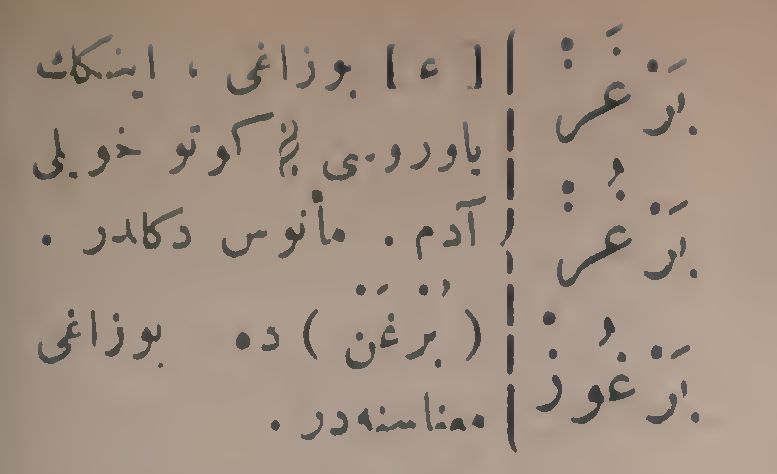 بَرْغَزْ
بَرْغُزْ
بَرْغُوزْ
[ ع ] بوزاغی ، اینكك
یاوروسی § كوتو خویلی
آدم . مأنوس دكلدر .
( بُرْغَزْ ) ده بوزاغی
معناسنه‌در .